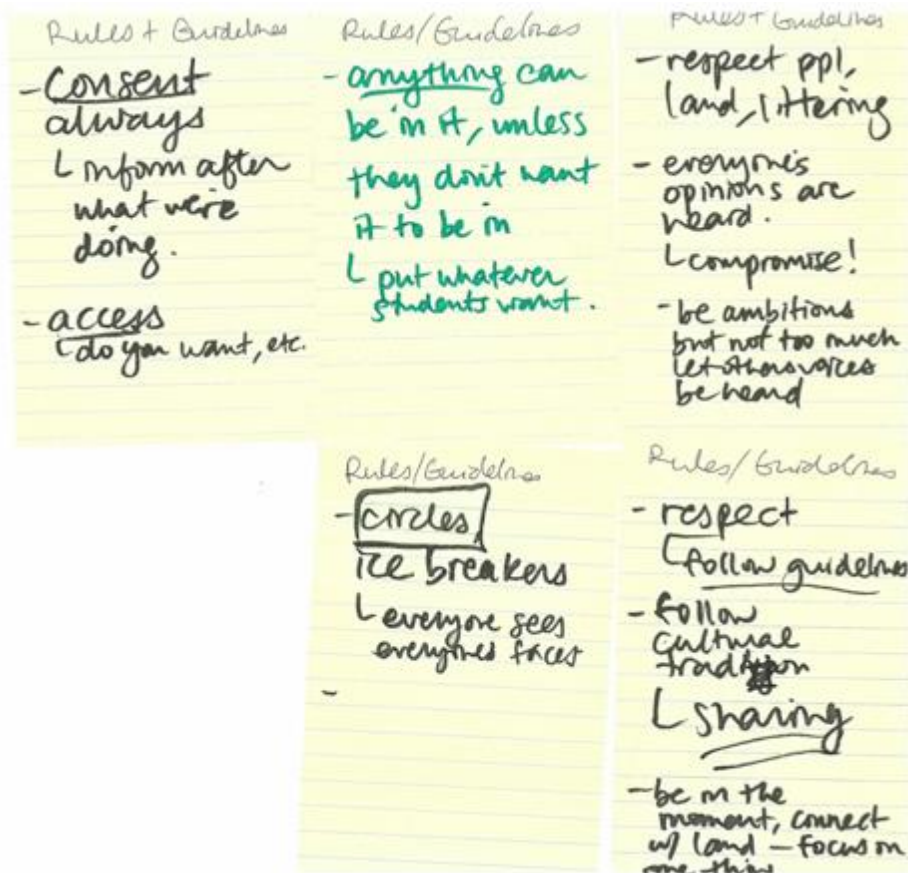 Rules + Guidelines
- Consent
always
└ inform after
what we're
doing.
- access
└ do you want, etc.
Rules/Guidelines
- anything can
be in it, unless
they don't want
it to be in
└ put whatever
students want.
Rules + Guidelines
- respect ppl,
land, littering
- everyone's
opinions are
heard.
└ compromise!
- be ambitions
but not too much
let others voices
be heard
Rules/Guidelines
- circles,
ice breakers
└ everyone sees
everyones faces
-
Rules/Guidelines
- respect
└ follow guidelines
- follow
cultural
tradition
└ sharing
- be in the
moment, connect
w/ land – focus on
one thing